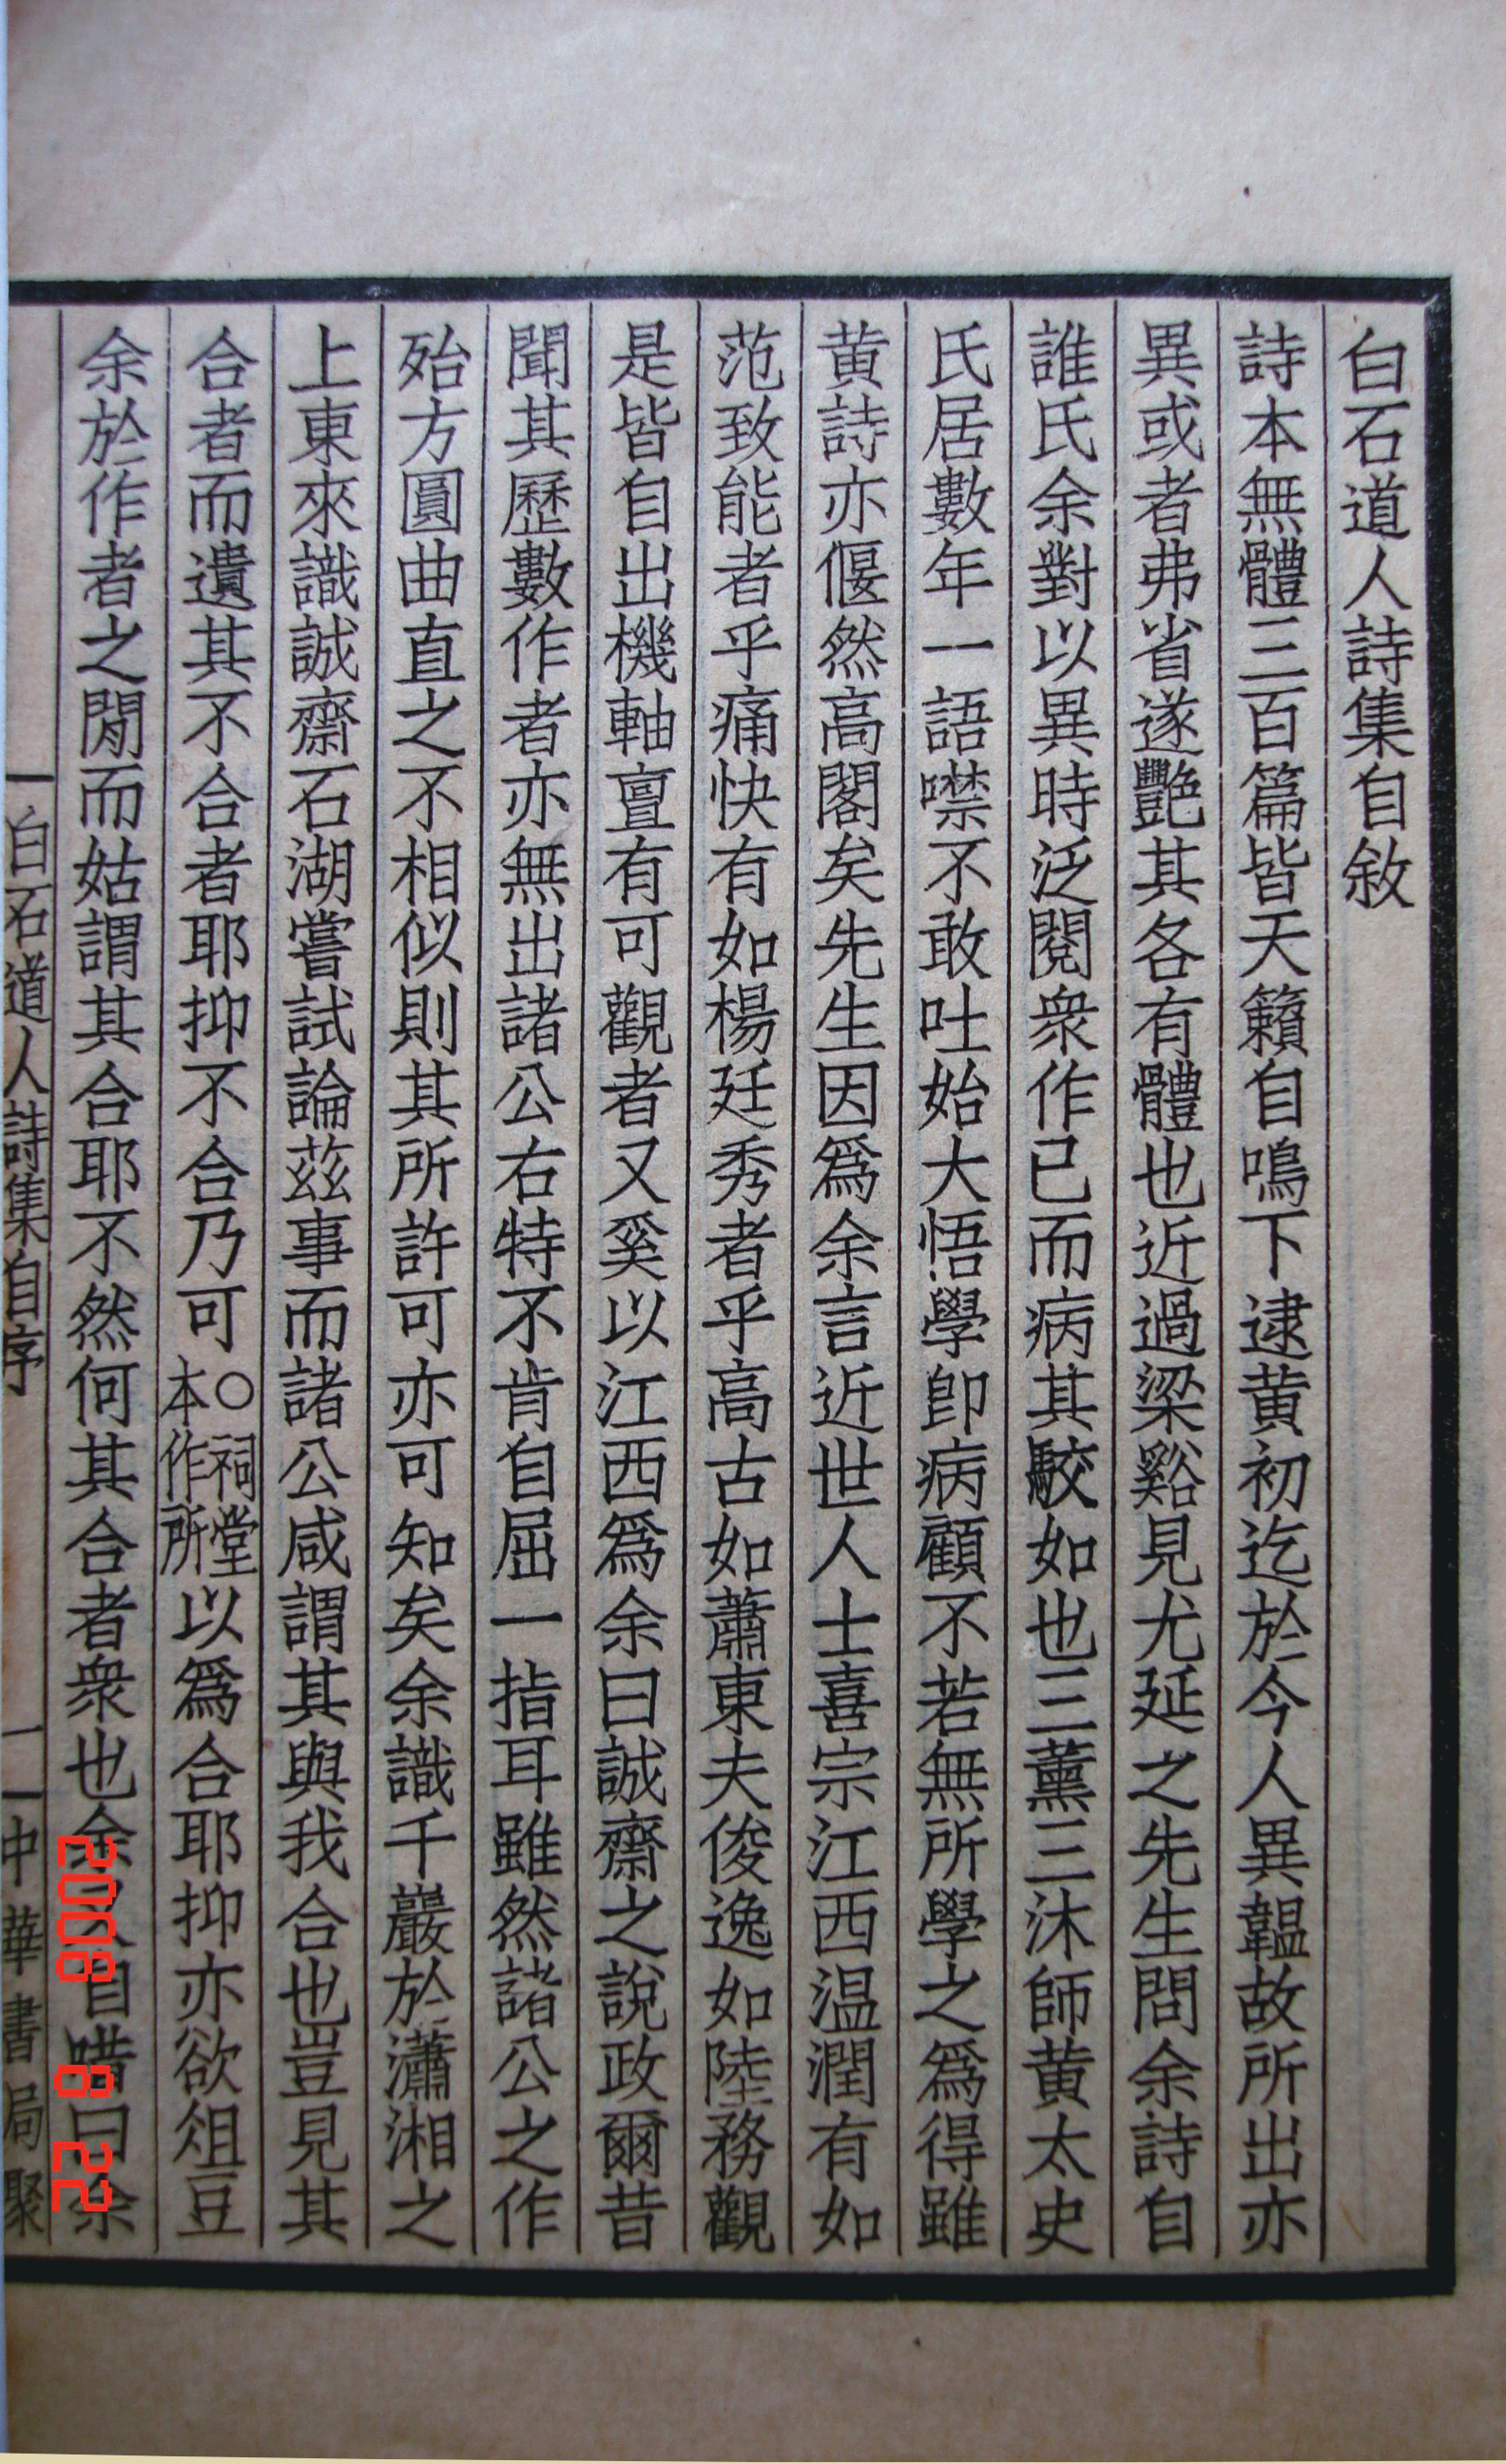 白石道人詩集自敘
詩本無體三百篇皆天籟自鳴下逮黄初迄於今人異韞故所出亦
異或者弗省遂艷其各有體也近過梁谿見尤延之先生問余詩自
誰氏余對以異時泛閱衆作已而病其駮如也三薰三沐師黄太史
氏居數年一語噤不敢吐始大悟學卽病顧不若無所學之爲得雖
黄詩亦偃然高閣矣先生因爲余言近世人士喜宗江西温潤有如
范致能者乎痛快有如楊廷秀者乎高古如蕭東夫俊逸如陸務觀
是皆自出機軸亶有可觀者又奚以江西爲余曰誠齋之說政爾昔
聞其歷數作者亦無出諸公右特不肯自屈一指耳雖然諸公之作
殆方圓曲直之不相似則其所許可亦可知矣余識千巖於瀟湘之
上東來識誠齋石湖嘗試論茲事而諸公咸謂其與我合也豈見其
合者而遺其不合者耶抑不合乃可○祠堂本作所以爲合耶抑亦欲俎豆
余於作者之閒而姑謂其合耶不然何其合者衆也余又自唶曰余
白石道人詩集自序
一
中華書局聚
2008 8 22